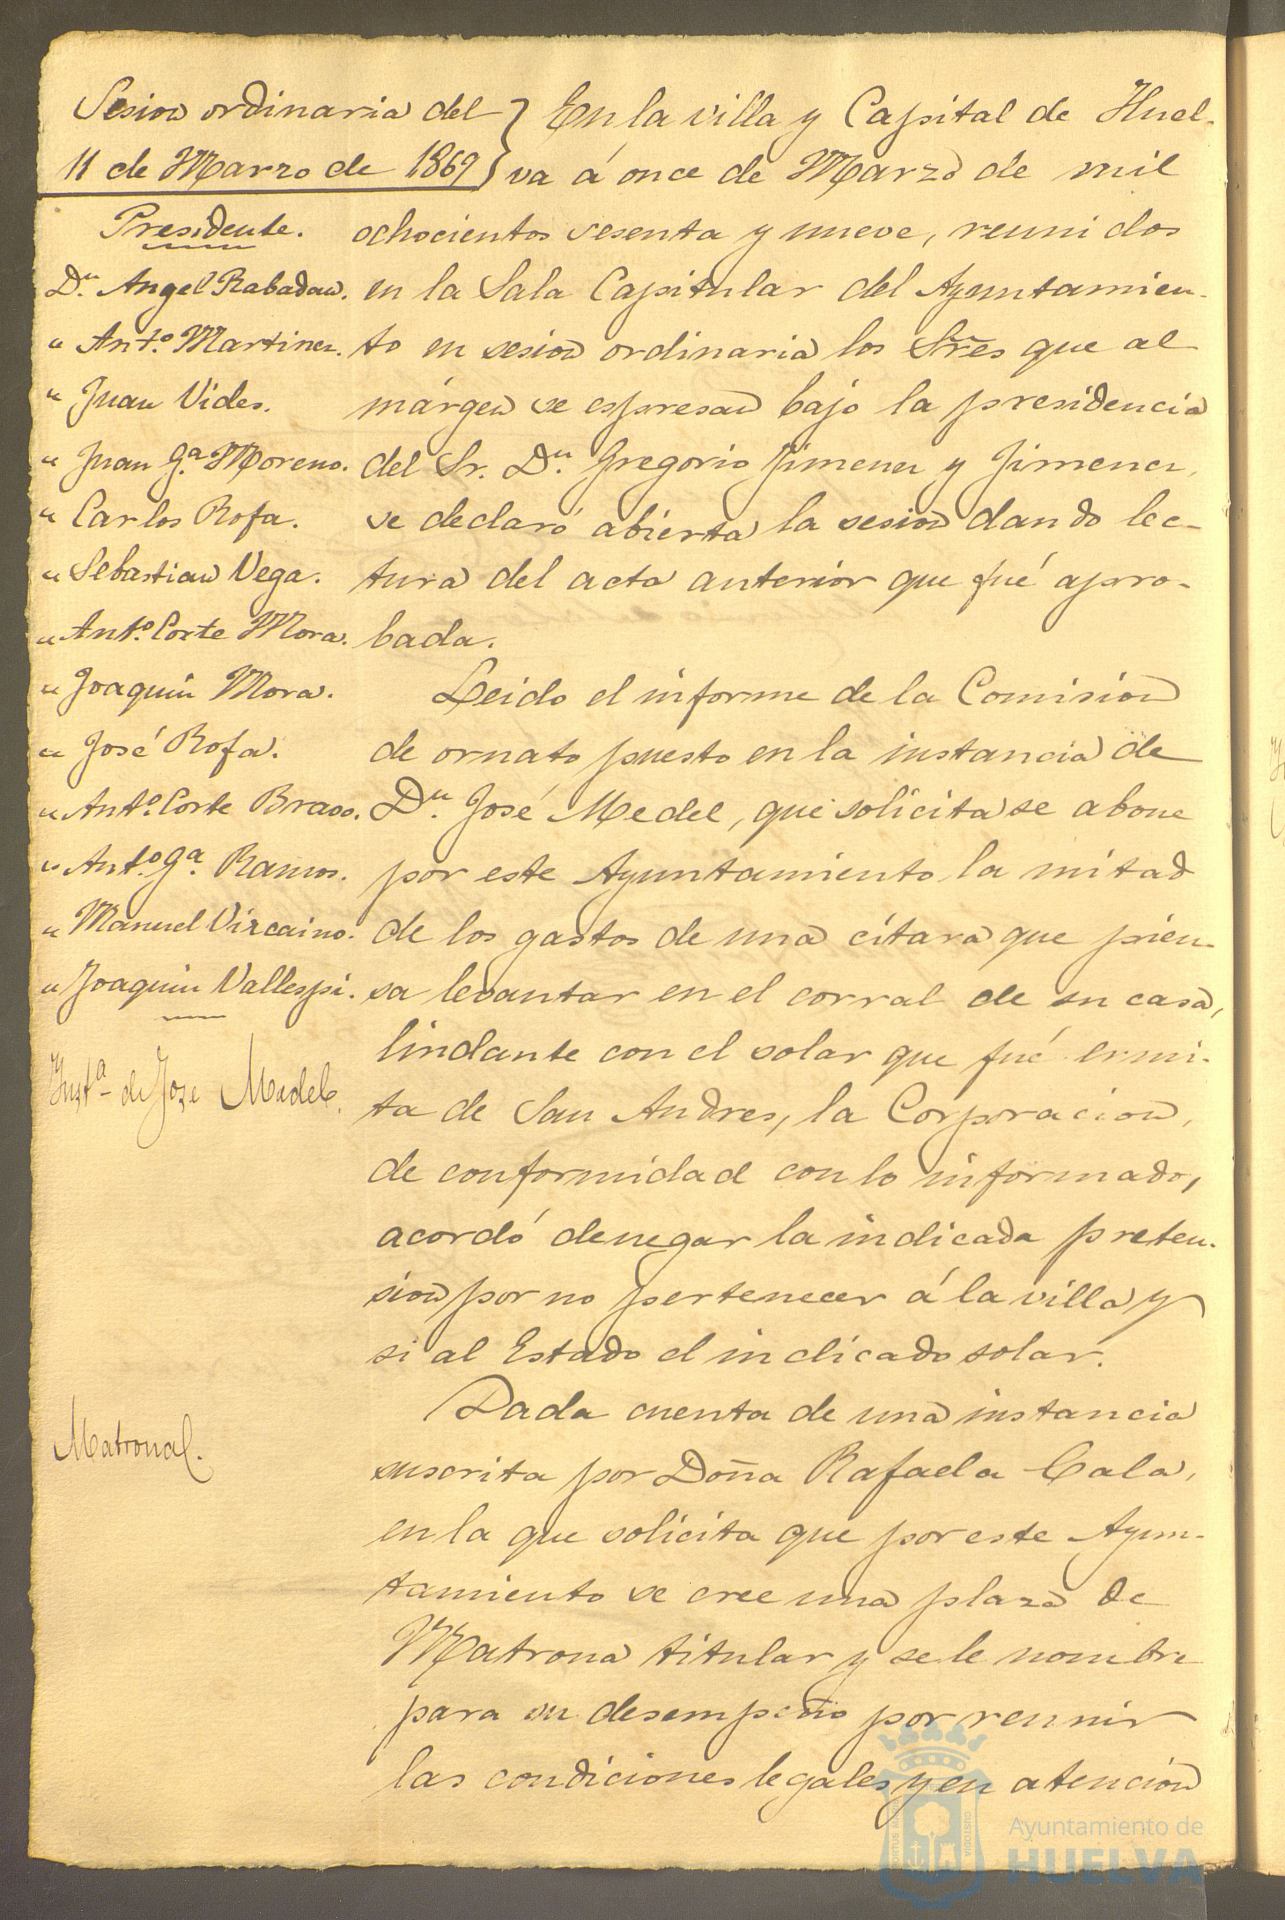 Sesion ordinaria del
11 de Marzo de 1869
Presidente.
Dn. Angel Rabadan.
" Anto. Martinez.
" Juan Vides.
" Juan Ga. Moreno.
" Carlos Rofa.
" Sebastian Vega.
" Anto. Corte Mora.
" Joaquin Mora.
" José Rofa.
" Anto. Corte Bravo.
" Anto. Ga. Ramos.
" Manuel Vizcaino.
" Joaquin Vallespi.
Insta. de Jose Medel.
Matrona.
En la villa y Capital de Huel-
va á once de Marzo de mil
ochocientos sesenta y nueve, reunidos
en la Sala Capitular del Ayuntamien-
to en sesion ordinaria los Sres que al
márgen se espresan bajo la presidencia
del Sr. Dn. Gregorio Jimenez y Jimenez,
se declaró abierta la sesion dando lec-
tura del acta anterior que fué apro-
bada.
Leido el informe de la Comision
de ornato puesto en la instancia de
Dn. José Medel, que solicita se abone
por este Ayuntamiento la mitad
de los gastos de una citara que pien-
sa levantar en el corral de su casa,
lindante con el solar que fué ermi-
ta de San Andres, la Corporacion,
de conformidad con lo informado,
acordó denegar la indicada preten-
sion por no pertenecer á la villa y
si al Estado el indicado solar.
Dada cuenta de una instancia
suscrita por Doña Rafaela Cala,
en la que solicita que por este Ayun-
tamiento se cree una plaza de
Matrona titular y se le nombre
para su desempeño por reunir
las condiciones legales y en atencion
Ayuntamiento de
HUELVA